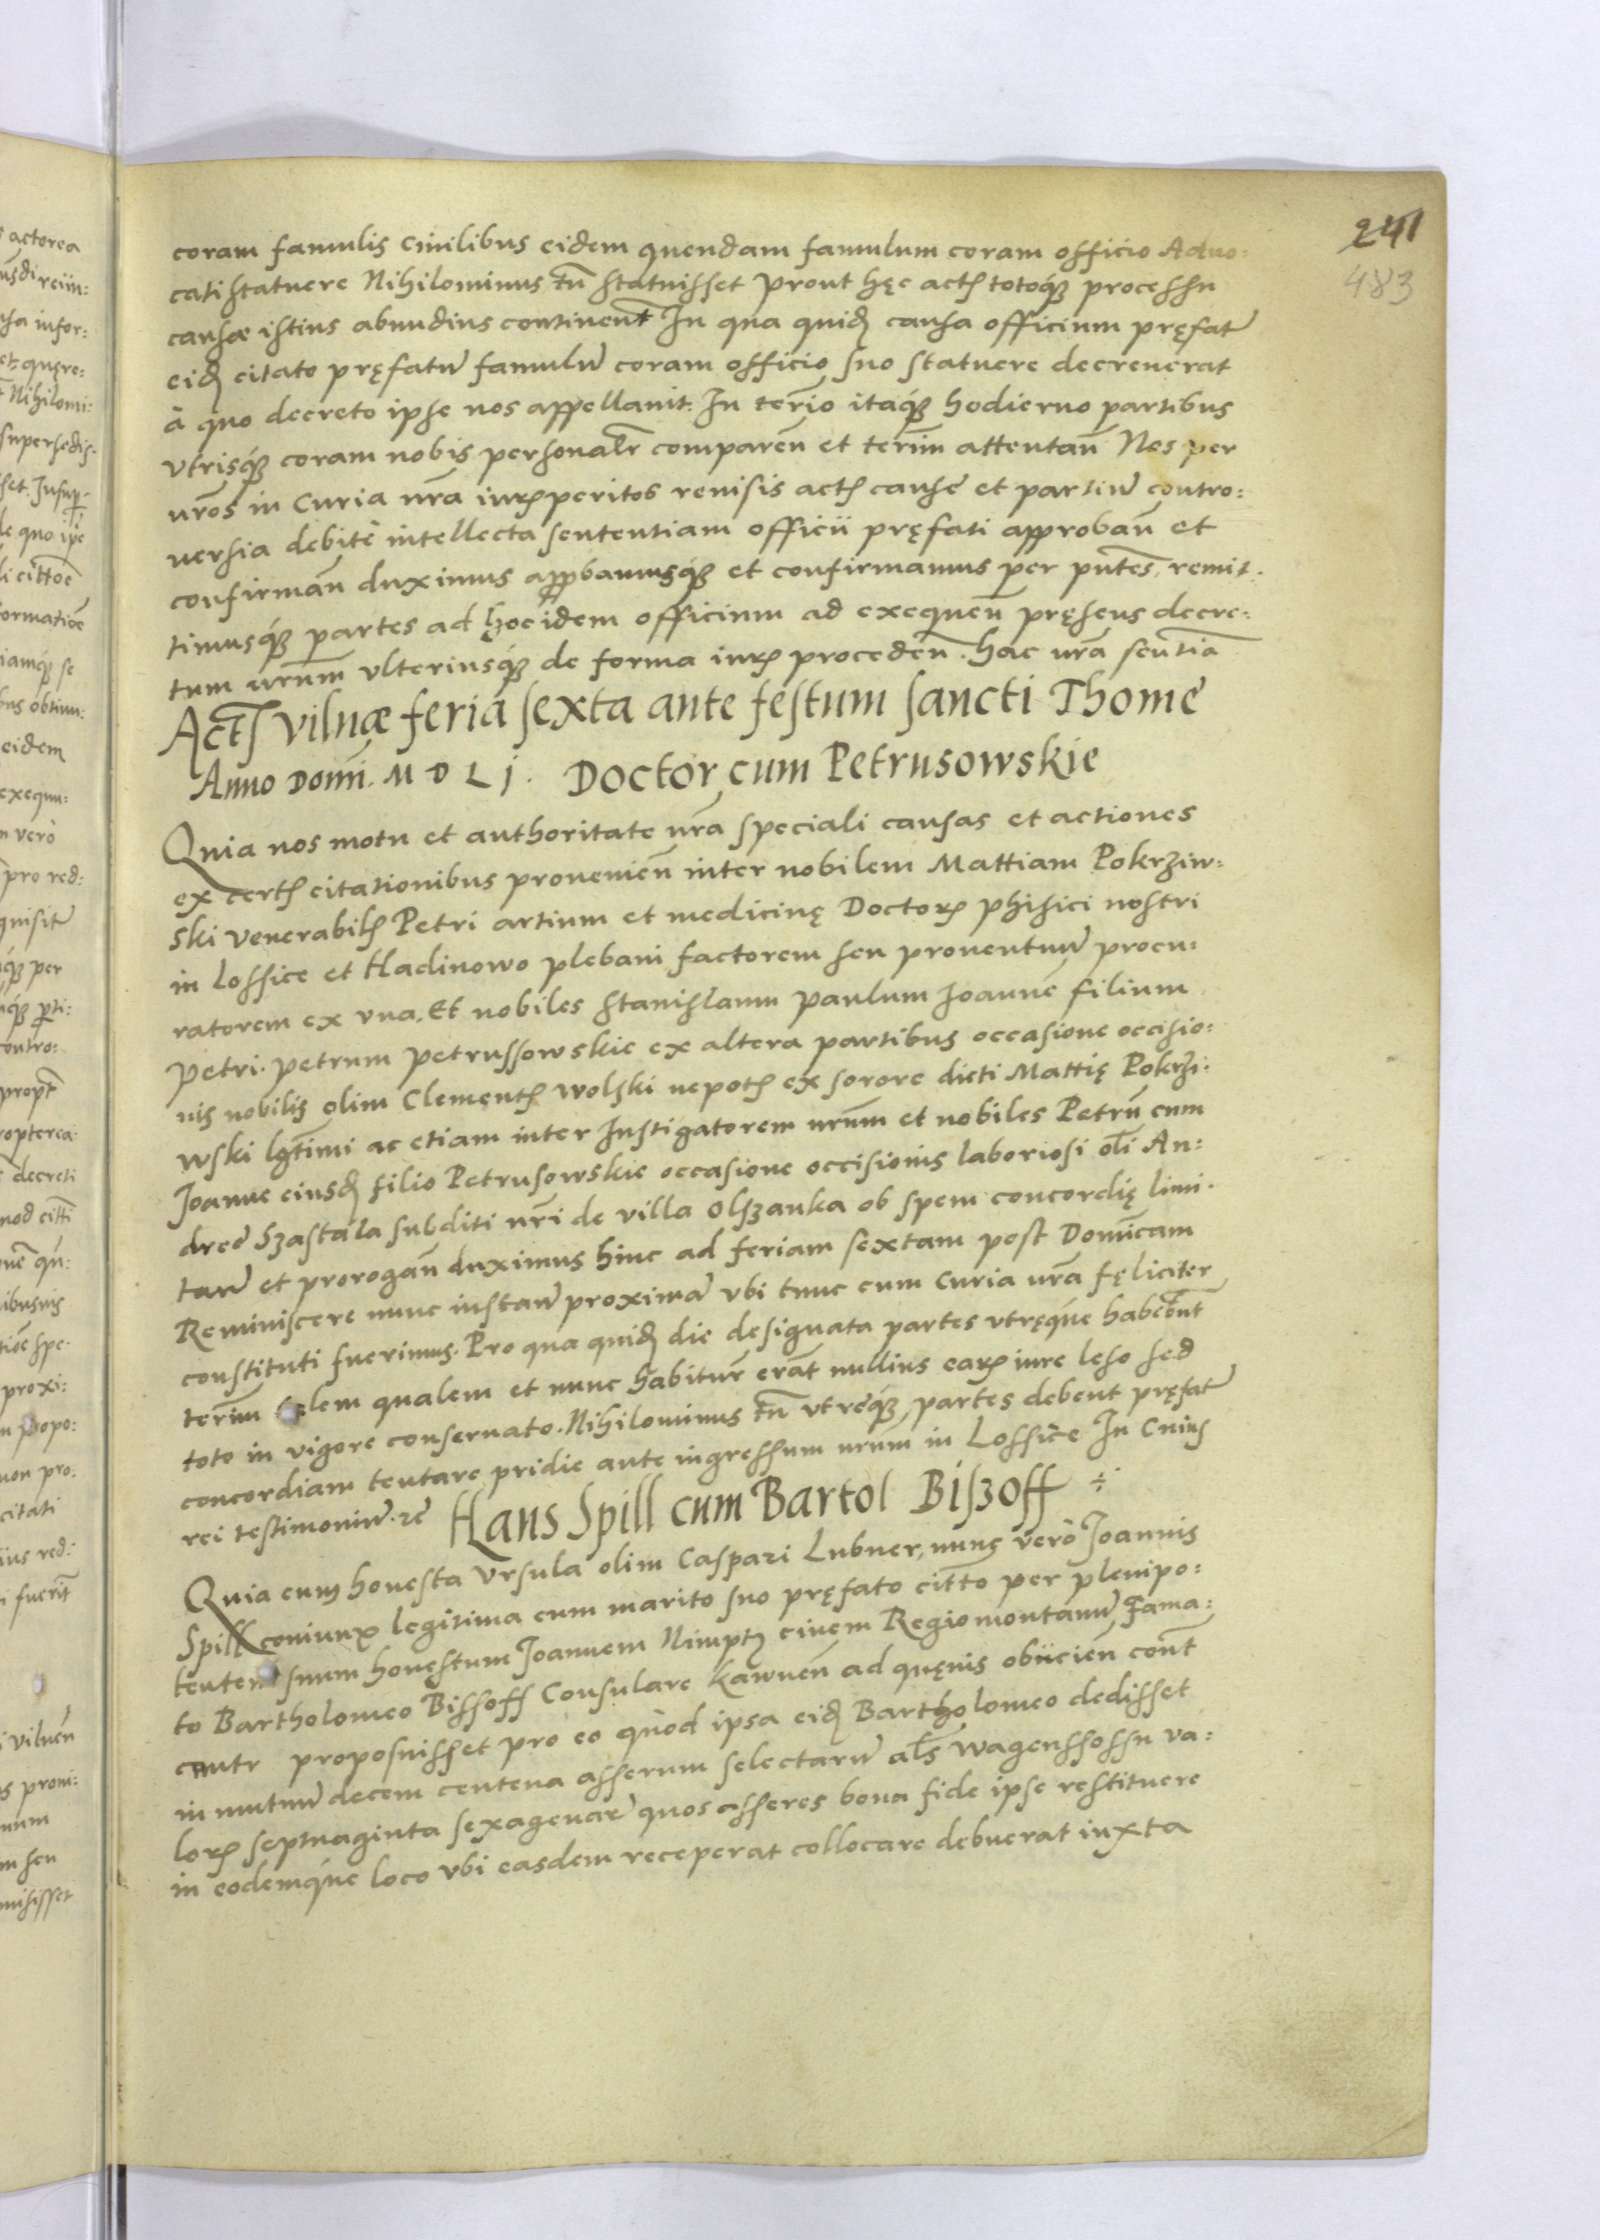 241
483
coram famulis ciuilibus eidem quendam famulum coram officio Aduo:
cati statuere Nihilominus tn̄ statuisset prout hęc actis totoq́ȝ processu
causæ istius abundius continent In qua quidē causa officium pręfat̄
eidē citato pręfatū famulū coram officio suo statuere decreuerat
à quo decreto ipse nos appellauit. In term̄io itaq́ȝ hodierno partibus
vtrisq́ȝ coram nobis personalr̄ comparen̄ et term̄m attentan̄ Nos per
nr̄os in Curia nr̄a iurisperitos reuisis actis cause et partiū contro:
uersia debitè intellecta sententiam officii pręfati approban̄ et
confirman̄ duximus approbamusq́ȝ et confirmamus per pn̄tes, remit:
timusq́ȝ partes ad hoc idem officium ad exequen̄ pręsens decre:
tum nr̄um vlteriusq́ȝ de forma iuris proceden̄. hac nr̄a sentn̄tia
Actis Vilnæ feria sexta ante festum sancti Thome
Anno Domī. M D L j. Doctor cum Petrusowskie
Quia nos motu et authoritate nr̄a speciali causas et actiones
ex certis citationibus prouenien̄ inter nobilem Mattiam Pokrziw:
ski Venerabilis Petri artium et medicinę Doctoris phisici nostri
in Lossice et Hadinowo plebani factorem seu prouentuū procu:
ratorem ex vna. Et nobiles Stanislaum Paulum Joannē filium
Petri. Petrum Petrussowskie ex altera partibus occasione occisio:
nis nobilis olim Clementis Wolski nepotis ex sorore dicti Mattię Pokrzi:
wski lgt̄imi ac etiam inter Instigatorem nr̄um et nobiles Petrū cum
Joanne eiusdē filio Petrusowskie occasione occisionis laboriosi oli An:
dreæ Szastala subditi nr̄i de villa Olszanka ob spem concordię limi:
tan̄ et prorogan̄ duximus hinc ad feriam sextam post Domīcam
Reminiscere nunc instan̄ proximā vbi tunc cum Curia nr̄a fęliciter
constituti fuerimus. Pro qua quidē die designata partes vtręq́ue habebūt
term̄m talem qualem et nunc habitur̄ erāt nullius earū iure leso sed
toto in vigore conseruato. Nihilominus tn̄ vtreq́ȝ partes debent pręfat̄
concordiam tentare pridie ante ingressum nr̄um in Lossice In Cuius
rei testimoniū. ꝛc̄ Hans Spill cum Bartol Biszoff ÷
Quia cum honesta Vrsula olim Caspari Lubner, nunc verò Joannis
Spill coniunx legitima cum marito suo pręfato citt̄o per plenipo:
tentem suum honestum Joannem Nimptz ciuem Regiomontanū Fama:
to Bartholomeo Bissoff Consulare Kawnen̄ ad quęuis obiicien̄ cont̄
contr proposuisset pro eo quòd ipsa eidē Bartholomeo dedisset
in mutuū decem centena asserum selectarū al̄s Wagenssossu va:
loris septuaginta sexagenarū quos asseres bona fide ipse restituere
in eodemq́ue loco vbi easdem receperat collocare debuerat iuxta